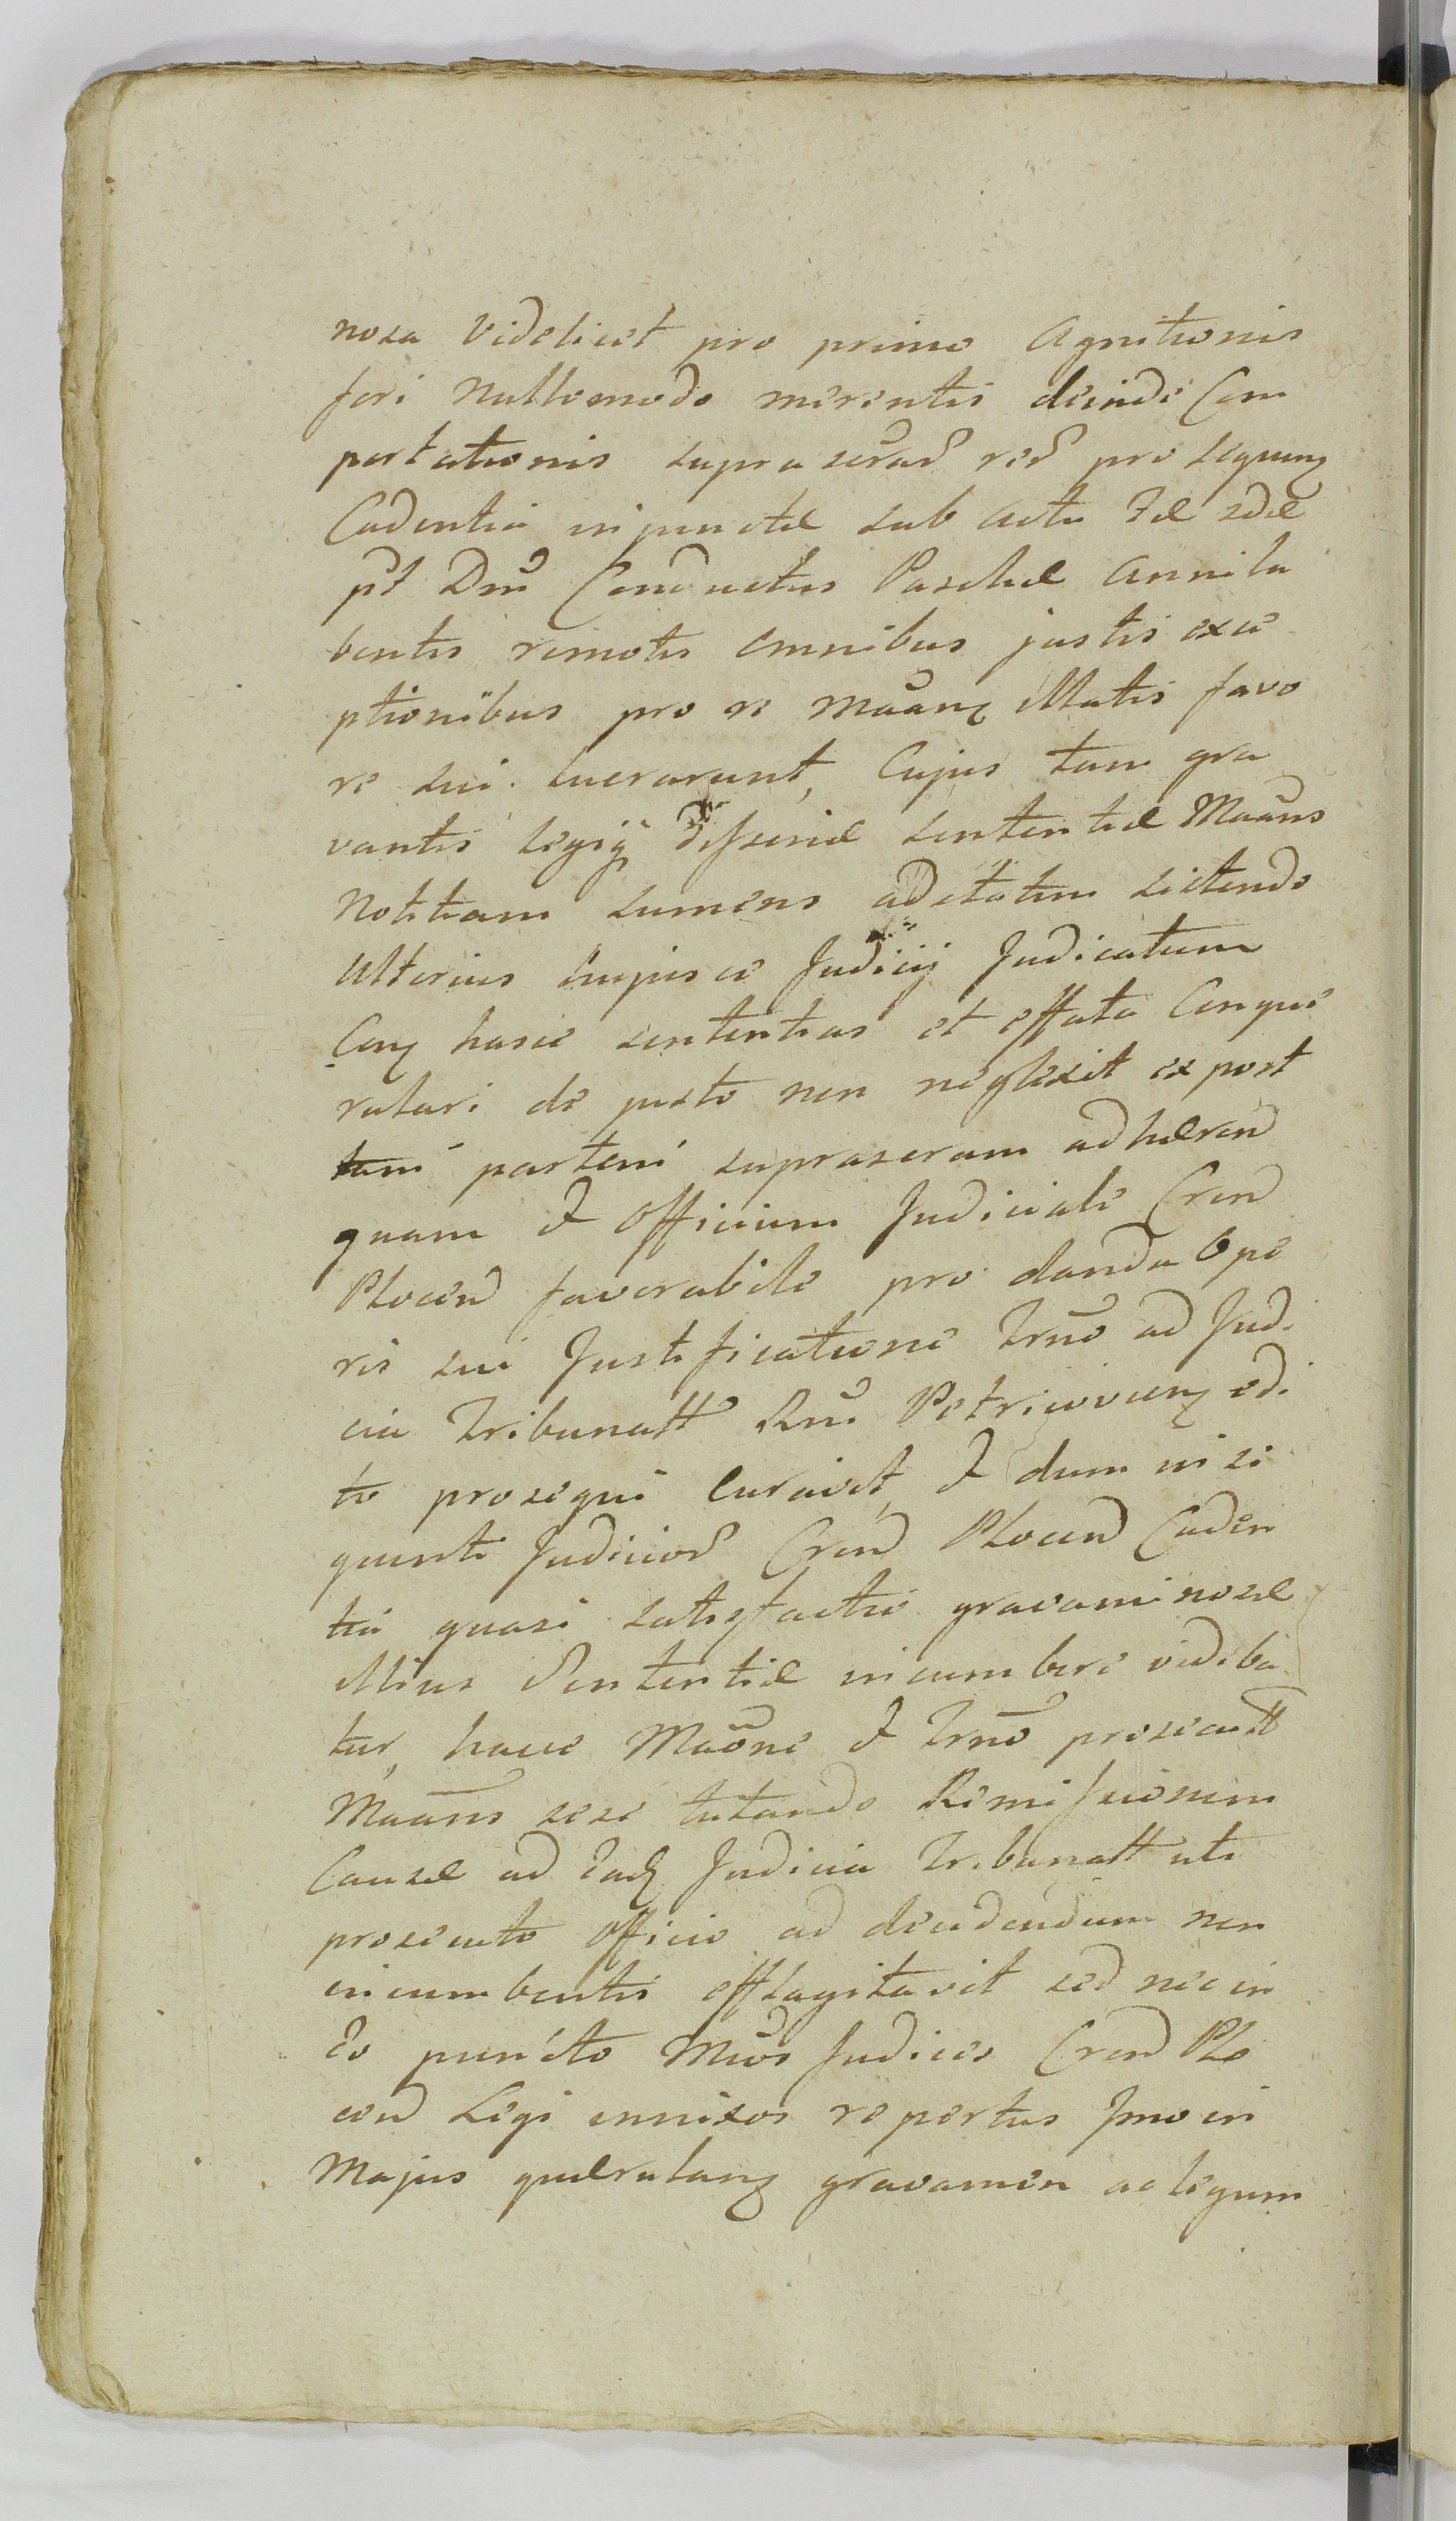 nosa Videlicet pro primo Agnitionis
fori Nullomodo merentis deinde Com
portationis supra pro sequenz
Cadentia injunctæ sub actu Fæ 2dæ
pt Dnī Conductus Paschæ Anni la
bentis remotis omnibus justis exce
ptionibus pro re Maanz Illatis favo
re sui lucrarunt, Cujus tam gra
vantis Legiq dissonæ sententiæ Maans
Notitiam sumens ad statum sistendo
Ulterius hujusce Judicij Judicatum
Conz hasce sententias et effata Conque
rulari de justo non neglexit ex post
tam partem suprascram adhæren̄d
quam & Officium Judiciale Cren̄d
Plocen̄d favorabile pro danda Ope
ris sui Justificatione Trnō ad Judi
cia Tribunatt Rnī Petricovienz edi
to prosequi Curavit, & dum in se
quenti Judicior Cren̄d Plocen̄d Caden
tia quasi satisfactio gravaminosæ
illius Sententiæ incumbere videba
tur, hacce Maōne & Trnō prosecutt
Maans sese tutando Remissionem
Causæ ad Eadz Judicia Tribunatt uti
prosecuto Officio ad decidendum non
incumbentis efflagitavit sed nec in
Eo puncto Mcos Judices Cren̄d Plo
cen̄d Legi innixos repertus Imo in
Majus quærulanz gravamen ac legum